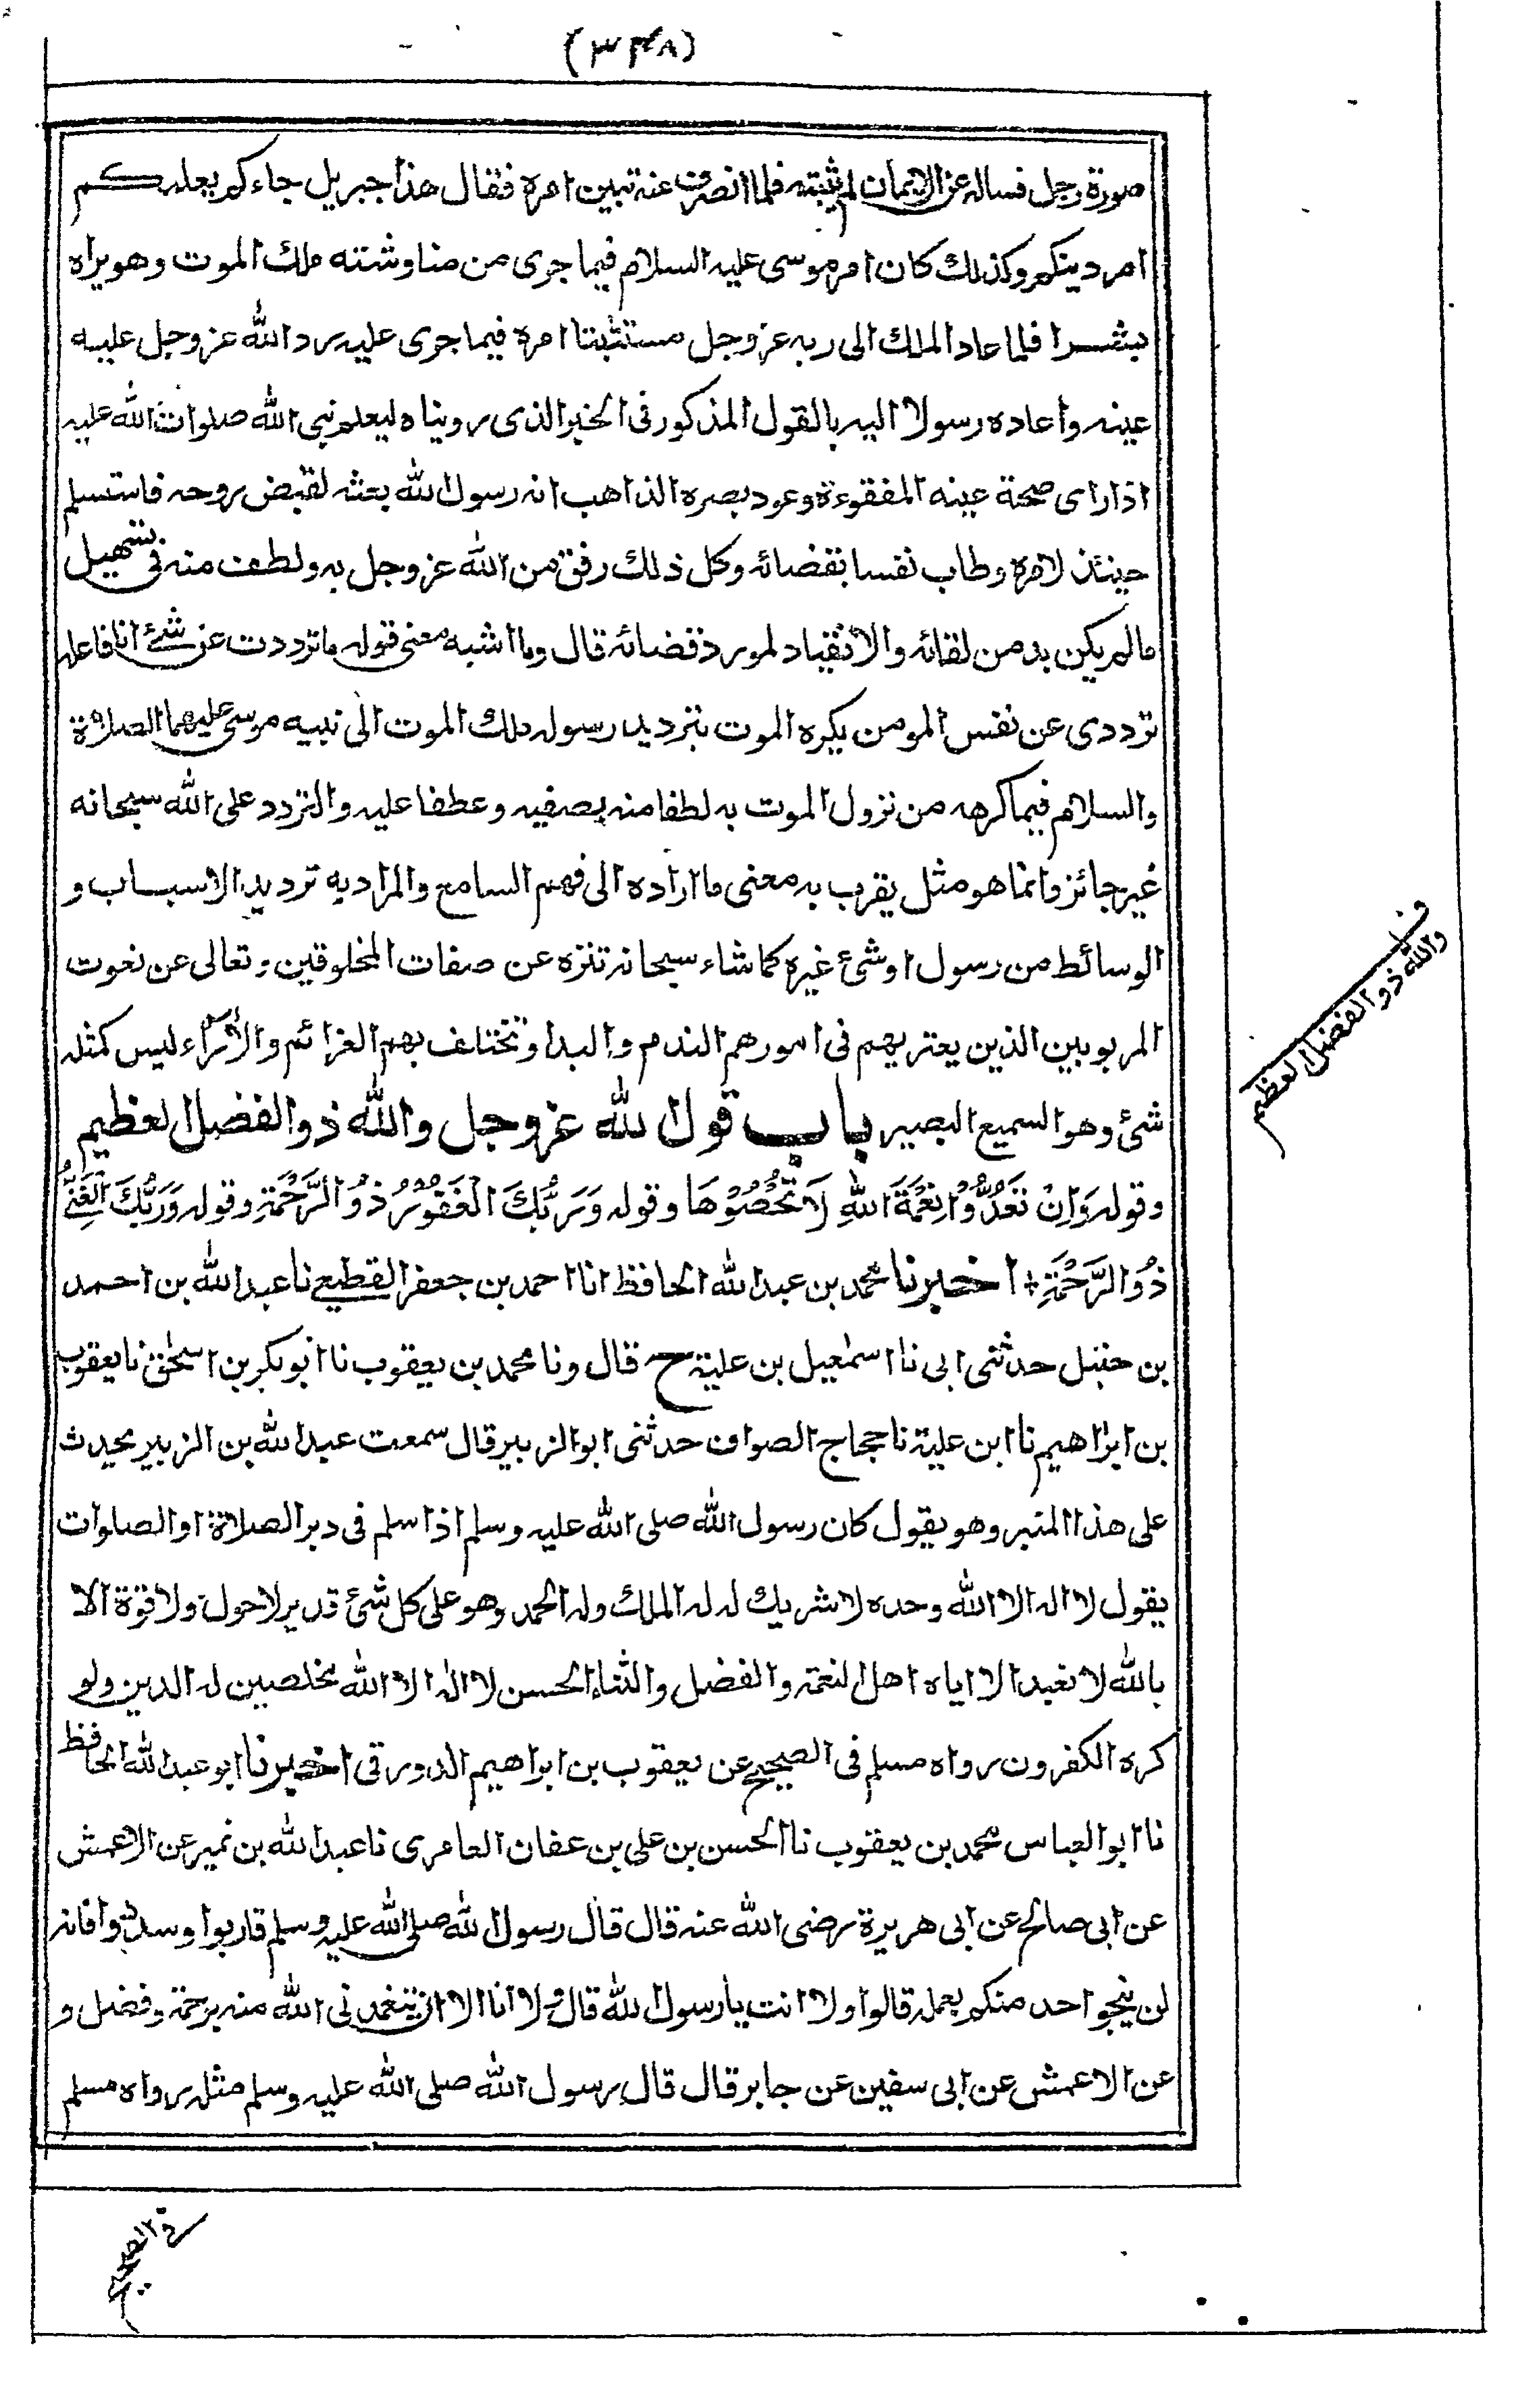 (۳۴۸)
صورة رجل فساله عن الايمان لم يثبته فلما انصرف عنه تبين امره فقال هذا جبريل جاءكم يعلمكم
امر دينكم وكذلك كان امر موسى عليه السلام فيما جرى من مناوشته ملك الموت وهو يراه
بشرا فلما عاد الملك الى ربه عزوجل مستثبتا امره فيما جرى عليه رد الله عزوجل عليه
عينه واعاده رسولا اليه بالقول المذكور فى الخبر الذى رويناه ليعلم نبى الله صلوات الله عليه
اذا راى صحة عينه المفقوءة وعود بصره الذاهب انه رسول الله بعثه لقبض روحه فاستسلم
حينئذ لامره وطاب نفسا بقضائه وكل ذلك رفق من الله عزوجل به ولطف منه فى تسهيل
ما لم يكن بد من لقائه والانقياد لمورد قضائه قال وما اشبه معنى قوله ما ترددت عن شئ انا فاعله
ترددى عن نفس المومن يكره الموت بترديد رسوله ملك الموت الى نبيه موسى عليهما الصلاة
والسلام فيما كرهه من نزول الموت به لطفا منه بصفيه وعطفا عليه والتردد على الله سبحانه
غير جائز وانما هو مثل يقرب به معنى ما اراده الى فهم السامع والمراد به ترديد الاسباب و
الوسائط من رسول او شئ غيره كما شاء سبحانه تنزه عن صفات المخلوقين وتعالى عن نعوت
المربوبين الذين يعتريهم فى امورهم الندم والبدا وتختلف بهم العزائم والاراء ليس كمثله
شئ وهو السميع البصير باب قول الله عزوجل والله ذو الفضل العظيم
وقوله وَاِنْ تَعُدُّوْا نِعْمَةَ اللهِ لَا تُحْصُوْهَا وقوله وَرَبُّكَ الْغَفُوْرُ ذُو الرَّحْمَةِ وقوله وَرَبُّكَ الْغَنِيُّ
ذُو الرَّحْمَةِ اخبرنا محمد بن عبد الله الحافظ انا احمد بن جعفر القطيعى نا عبد الله بن احمد
بن حنبل حدثنى ابى نا اسمٰعيل بن علية ح قال ونا محمد بن يعقوب نا ابو بكر بن اسحٰق نا يعقوب
بن ابراهيم نا ابن علية نا حجاج الصواف حدثنى ابو الزبير قال سمعت عبد الله بن الزبير يحدث
على هذا المنبر وهو يقول كان رسول الله صلى الله عليه وسلم اذا سلم فى دبر الصلاة او الصلوات
يقول لا اله الا الله وحده لا شريك له له الملك وله الحمد وهو على كل شئ قدير لا حول ولا قوة الا
بالله لا نعبد الا اياه اهل النعمة والفضل والثناء الحسن لا اله الا الله مخلصين له الدين ولو
كره الكفرون رواه مسلم فى الصحيح عن يعقوب بن ابراهيم الدورقى اخبرنا ابو عبد الله الحافظ
نا ابو العباس محمد بن يعقوب نا الحسن بن على بن عفان العامرى نا عبد الله بن نمير عن الاعمش
عن ابى صالح عن ابى هريرة رضى الله عنه قال قال رسول الله صلى الله عليه وسلم قاربوا وسددوا فانه
لن ينجو احد منكم بعمله قالوا ولا انت يا رسول الله قال ولا انا الا ان يتغمدنى الله منه برحمة وفضل و
عن الاعمش عن ابى سفين عن جابر قال قال رسول الله صلى الله عليه وسلم مثله رواه مسلم
والله ذو الفضل العظيم
فى الصحيح